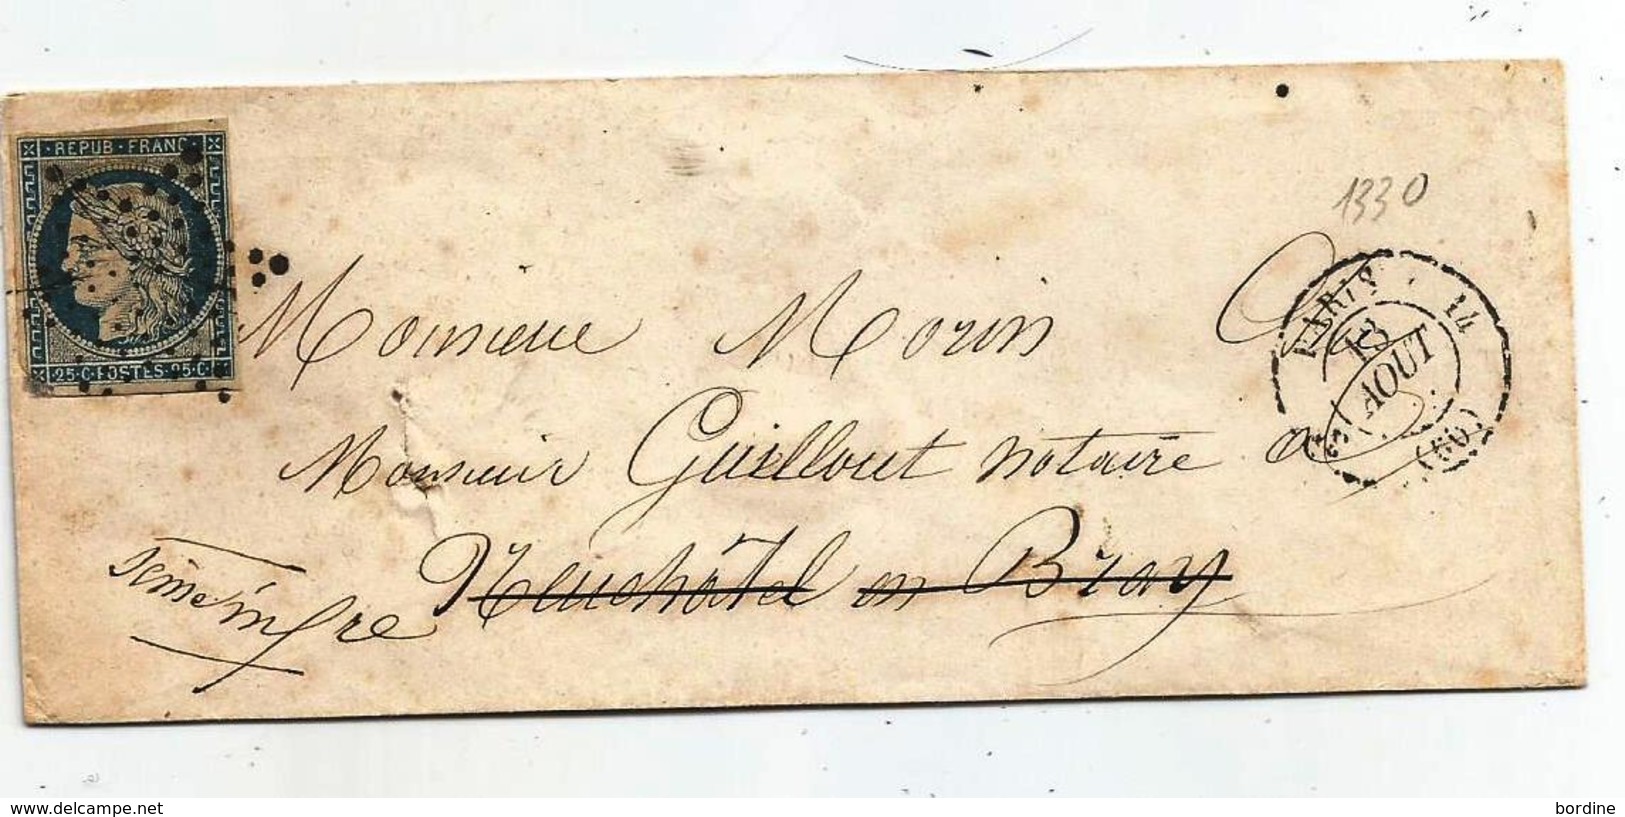 REPUB · FRANC
25 · C · POSTES · 25 · C ·
1330
Monsieur Morin Cez
Monsieur Guillout notaire a
Neuchâtel en Bray
Seine infre
PARIS 14
18
AOUT
(60)
www.delcampe.net
bordine